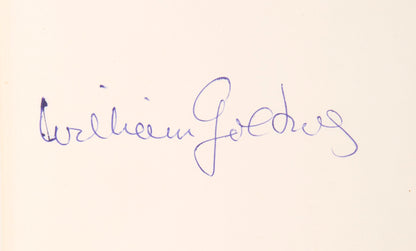 William Golding